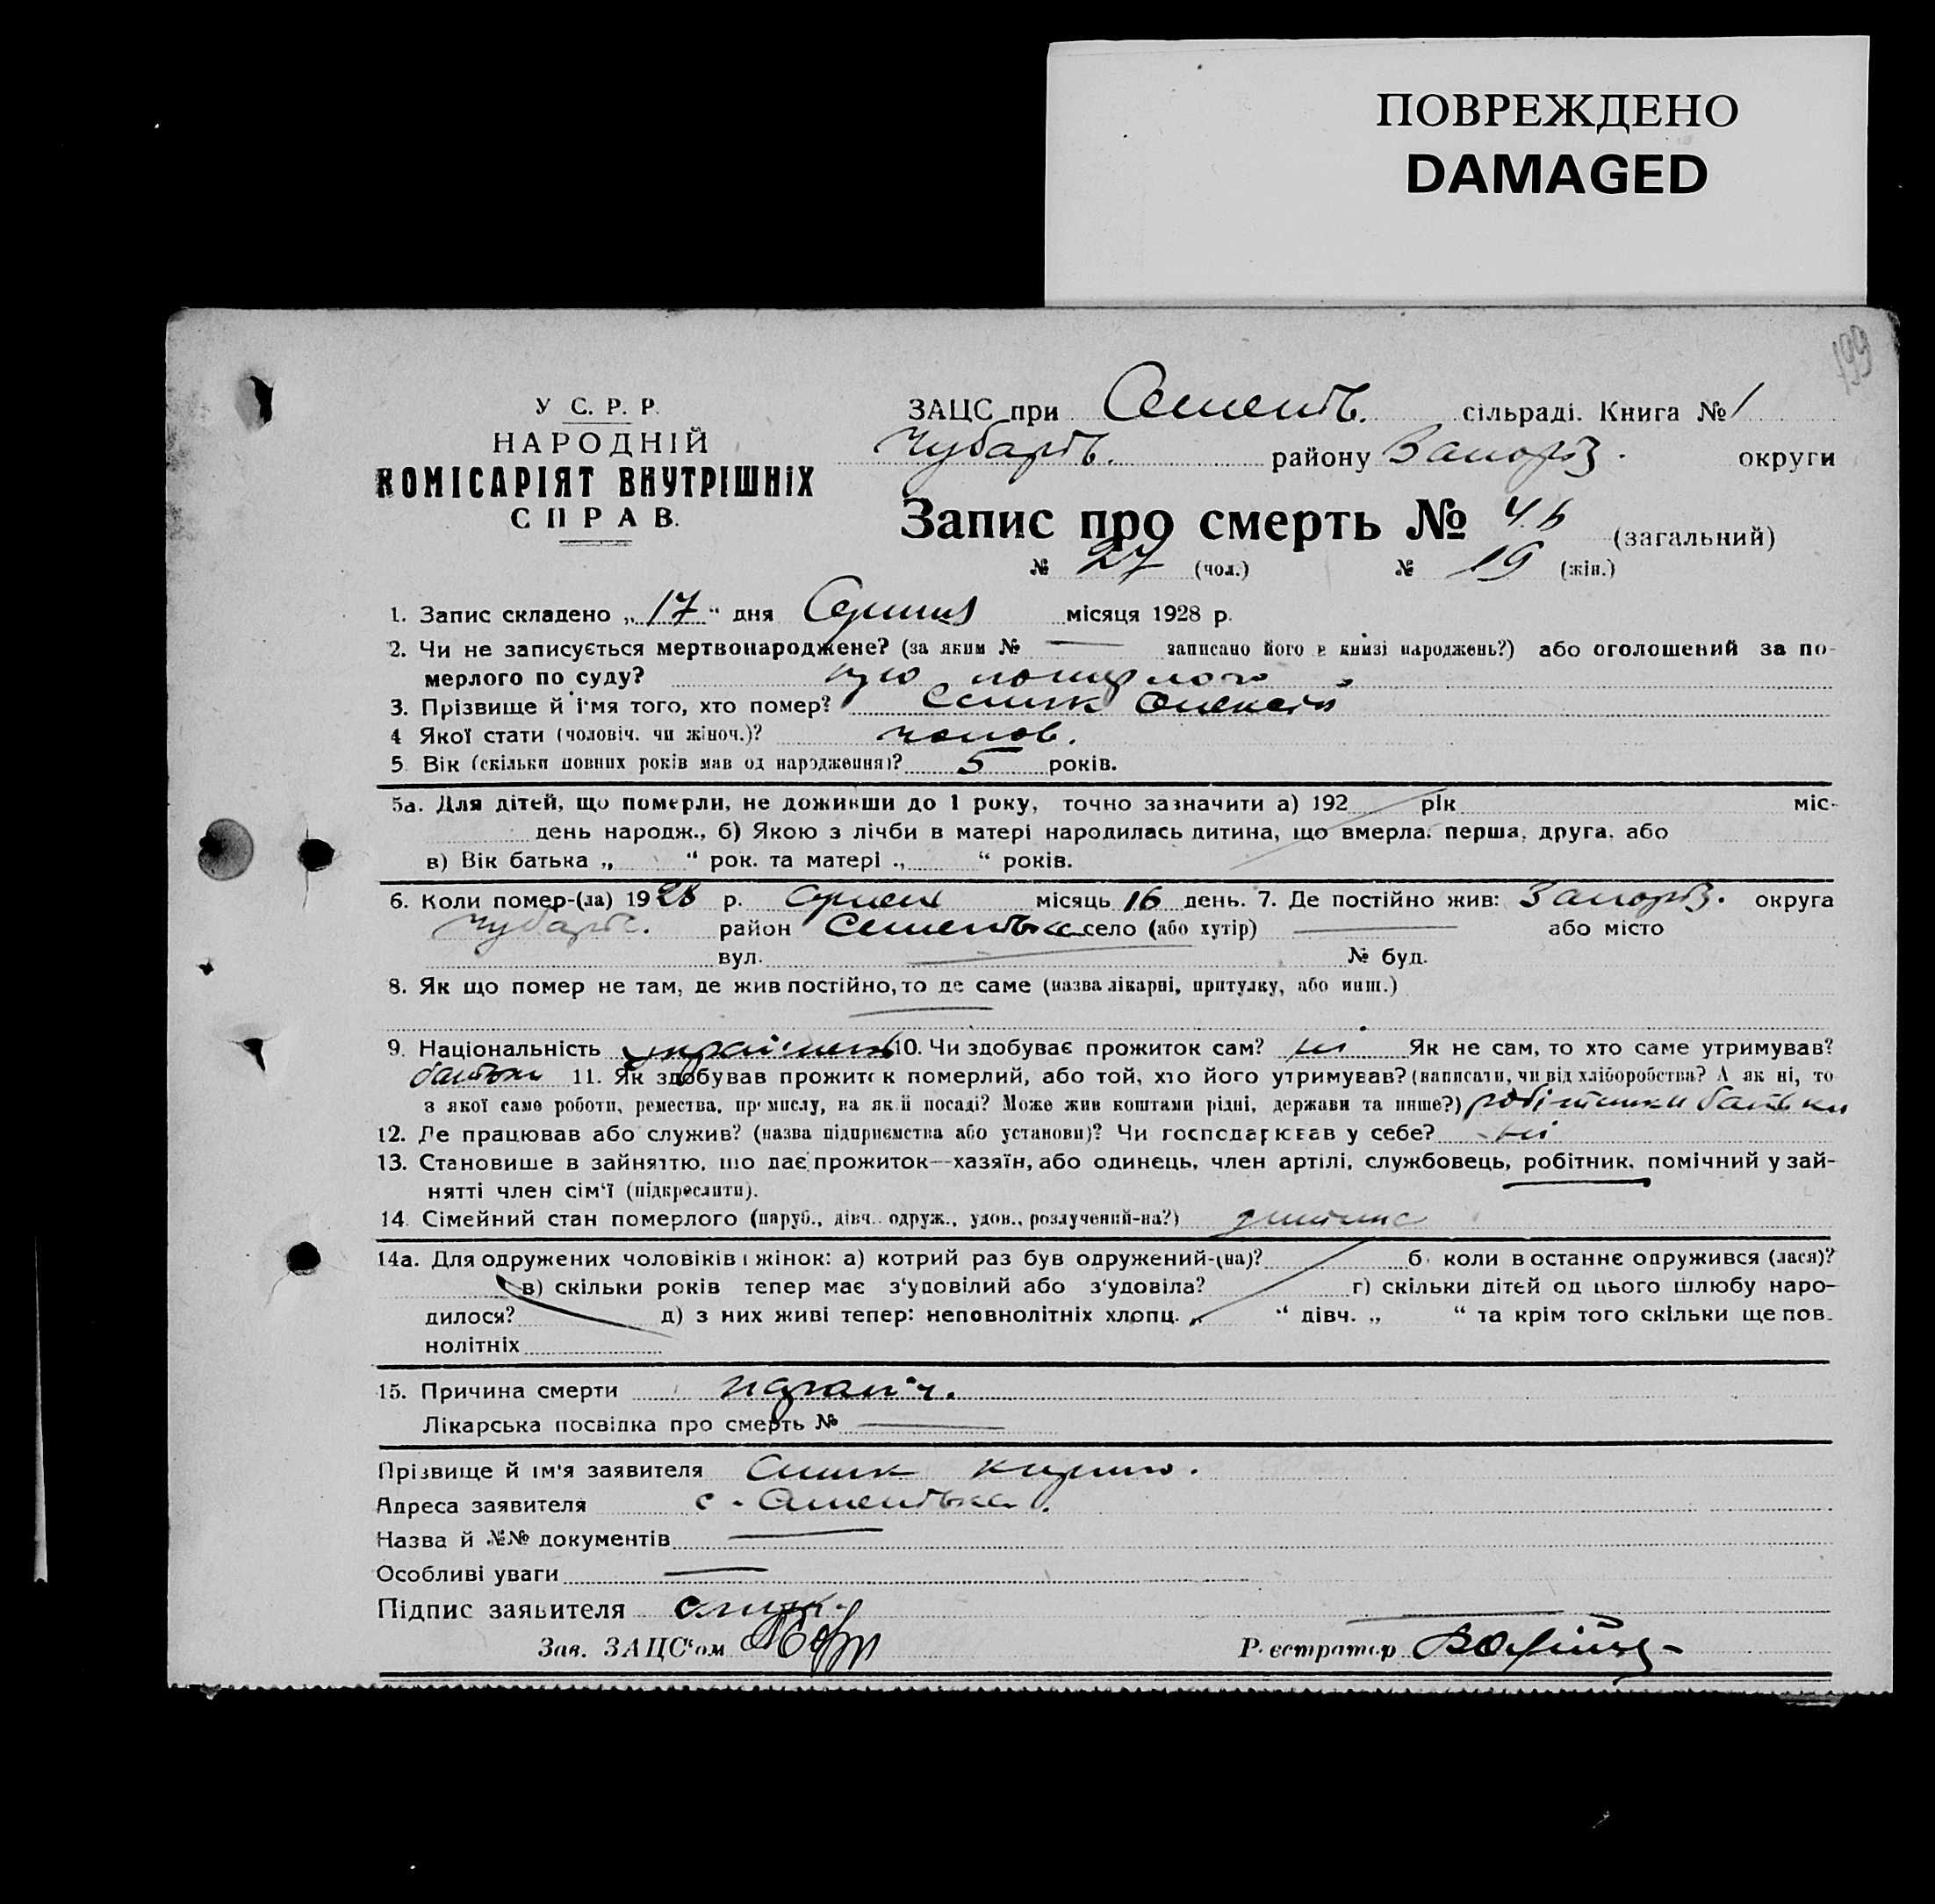 ПОВРЕЖДЕНО
DAMAGED
199
У С. Р. Р.
НАРОДНІЙ
КОМІСАРІЯТ ВНУТРІШНІХ
СПРАВ.
ЗАЦС при Семенів. сільраді. Книга № 1
Чубарів. району Запоріз. округи
Запис про смерть № 46 (загальний)
№ 27 (чол.) № 19 (жін.)
1. Запис складено „ 17 “ дня Серпня місяця 1928 р.
2. Чи не записується мертвонароджене? (за яким № — записано його в книзі народжень?) або оголошений за по-
мерлого по суду?
3. Прізвище й ім'я того, хто помер? Олексій
4 Якої стати (чоловіч. чи жіноч.)? чолов.
5. Вік (скільки повних років мав од народження)? 5 років.
5а. Для дітей, що померли, не доживши до 1 року, точно зазначити а) 192 рік міс-
день народж., б) Якою з лічби в матері народилась дитина, що вмерла: перша, друга, або
в) Вік батька „ “ рок. та матері „ “ років.
6. Коли помер-(ла) 1928 р. Серпень місяць 16 день. 7. Де постійно жив: Запоріз. округа
Чубарів. район Семенівка село (або хутір) — або місто
вул. № буд.
8. Як що помер не там, де жив постійно, то де саме (назва лікарні, притулку, або инш.)
9. Національність українець 10. Чи здобуває прожиток сам? ні Як не сам, то хто саме утримував?
батьки 11. Як здобував прожиток померлий, або той, хто його утримував? (написати, чи від хліборобства? А як ні, то
з якої саме роботи, ремества, промислу, на якій посаді? Може жив коштами рідні, держави та инше?) робітники батьки
12. Де працював або служив? (назва підприємства або установи)? Чи господарював у себе? ні
13. Становище в зайняттю, що дає прожиток—хазяїн, або одинець, член артілі, службовець, робітник, помічний у зай-
нятті член сім'ї (підкреслити).
14. Сімейний стан померлого (паруб., дівч., одруж., удов., розлучений-на?) дитина
14а. Для одружених чоловіків і жінок: а) котрий раз був одружений-(на)? б) коли в останнє одружився (лася)?
в) скільки років тепер має з'удовілий або з'удовіла? г) скільки дітей од цього шлюбу наро-
дилося? д) з них живі тепер: неповнолітніх хлопц. „ “ дівч. „ “ та крім того скільки ще пов-
нолітніх
15. Причина смерти
Лікарська посвідка про смерть № —
Прізвище й ім'я заявителя
Адреса заявителя с. Семенівка.
Назва й №№ документів —
Особливі уваги —
Підпис заявителя
Зав. ЗАЦС'ом
Реєстратор